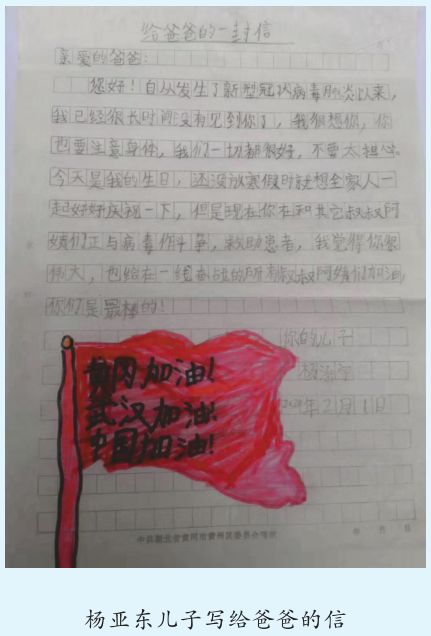 给爸爸的一封信
亲爱的爸爸:
您好!自从发生了新型冠状病毒肺炎以来,
我已经很长时间没有见到你了,我很想你,你
也要注意身体,我们一切都很好,不要太担心。
今天是我的生日,还没放寒假时就想全家人一
起好好庆祝一下,但是现在你在和其它叔叔阿
姨们正与病毒作斗争,救助患者,我觉得你很
伟大,也给在一线奋战的所有叔叔阿姨们加油
你们是最棒的!
你的儿子
黄冈加油!
武汉加油!
中国加油!
中共湖北省黄冈市黄州区委员会
年 月 日
杨亚东儿子写给爸爸的信